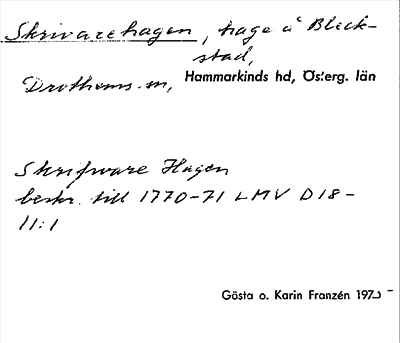 Skrivarehagen, hage å Bleck-
stad,
Drothems sn, Hammarkinds hd, Österg. län
Skrifware Hagen
beskr. till 1770-71 LMV D18-
11:1
Gösta o. Karin Franzén 197